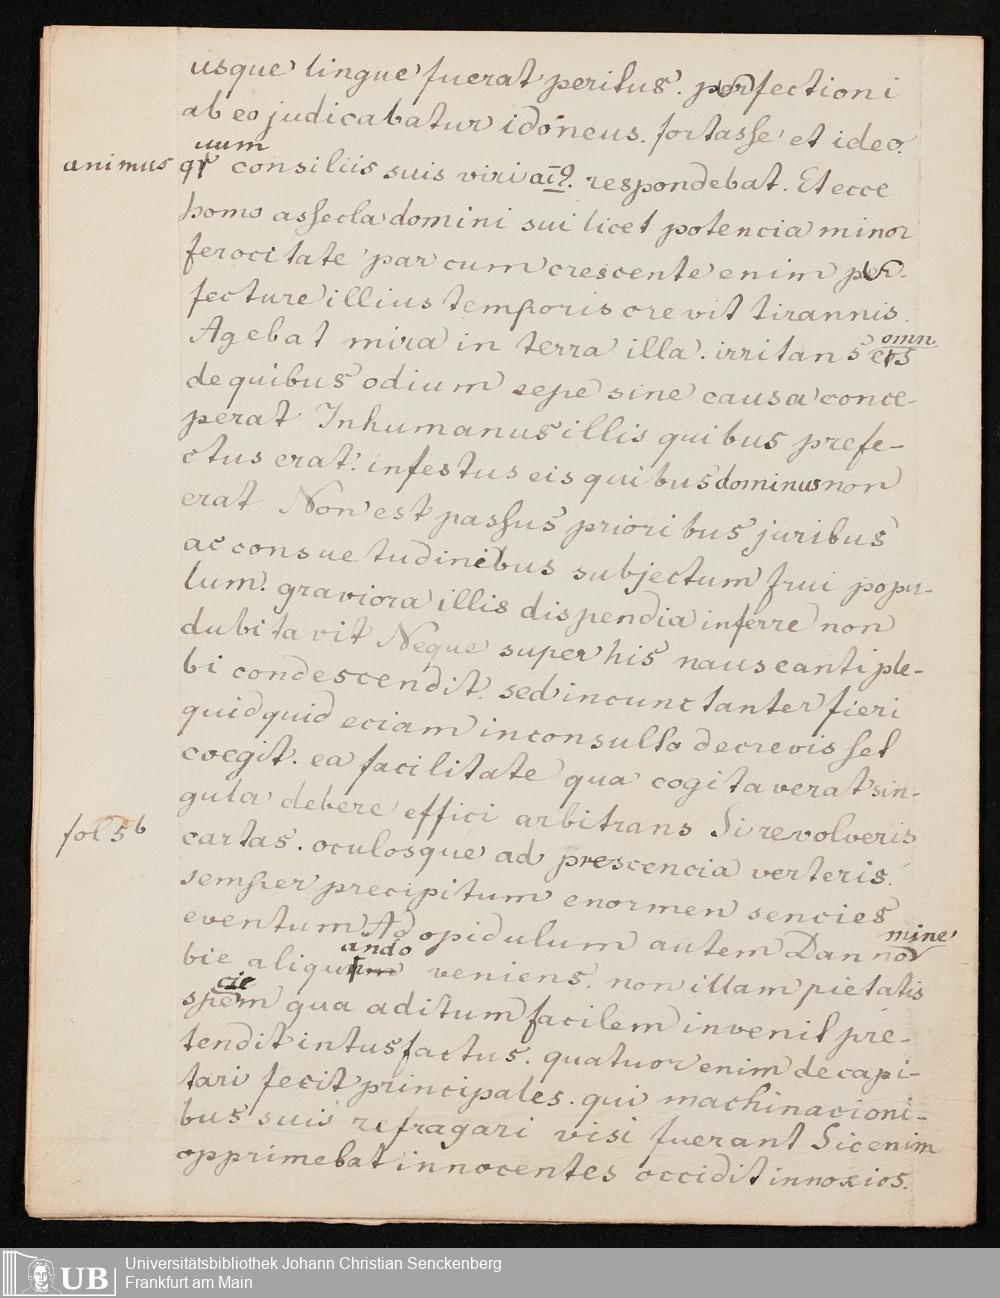 usque lingue fuerat peritus. perfectioni
ab eo judicabatur idoneus. fortasse et ideo.
uum
animus
qr consiliis suis viri aiꝰ. respondebat. Et ecce
homo assecla domini sui licet potencia minor
ferocitate par cum crescente enim per-
fecture illius temporis crevit tirannis.
Agebat mira in terra illa. irritans eos
omn
de quibus odium sepe sine causa conce-
perat Inhumanus illis quibus prefe-
ctus erat. infestus eis quibus dominus non
erat Non est passus prioribus juribus
ac consuetudinibus subjectum frui popu-
lum. graviora illis dispendia inferre non
dubitavit Neque super his nauseanti ple-
bi condescendit. sed incunctanter fieri
quidquid eciam inconsulto decrevisset
coegit. ea facilitate qua cogitaverat sin-
gula debere effici arbitrans Si revolveris
fol 5b
cartas. oculosque ad prescencia verteris.
semper precipitum enormen sencies
eventum Ad opidulum autem Danno
mine
bie aliqu veniens. non illam pietatis
ando
spem qua aditum facilem invenit pre-
cie
tendit intus factus. quatuor enim decapi-
tari fecit principales. qui machinacioni-
bus suis refragari visi fuerant Sic enim
opprimebat innocentes occidit innoxios.
Universitätsbibliothek Johann Christian Senckenberg
Frankfurt am Main
UB